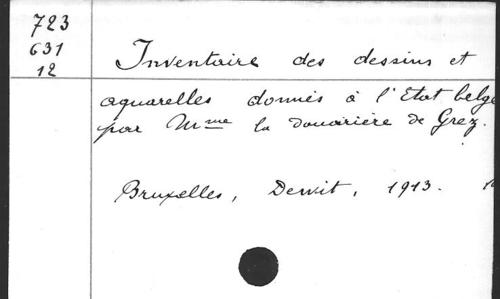 723
631
12
Inventaire des dessins et
aquarelles donnés à l'Etat belge
par Mme la douairière de Grez.
Bruxelles, Dewit, 1913.